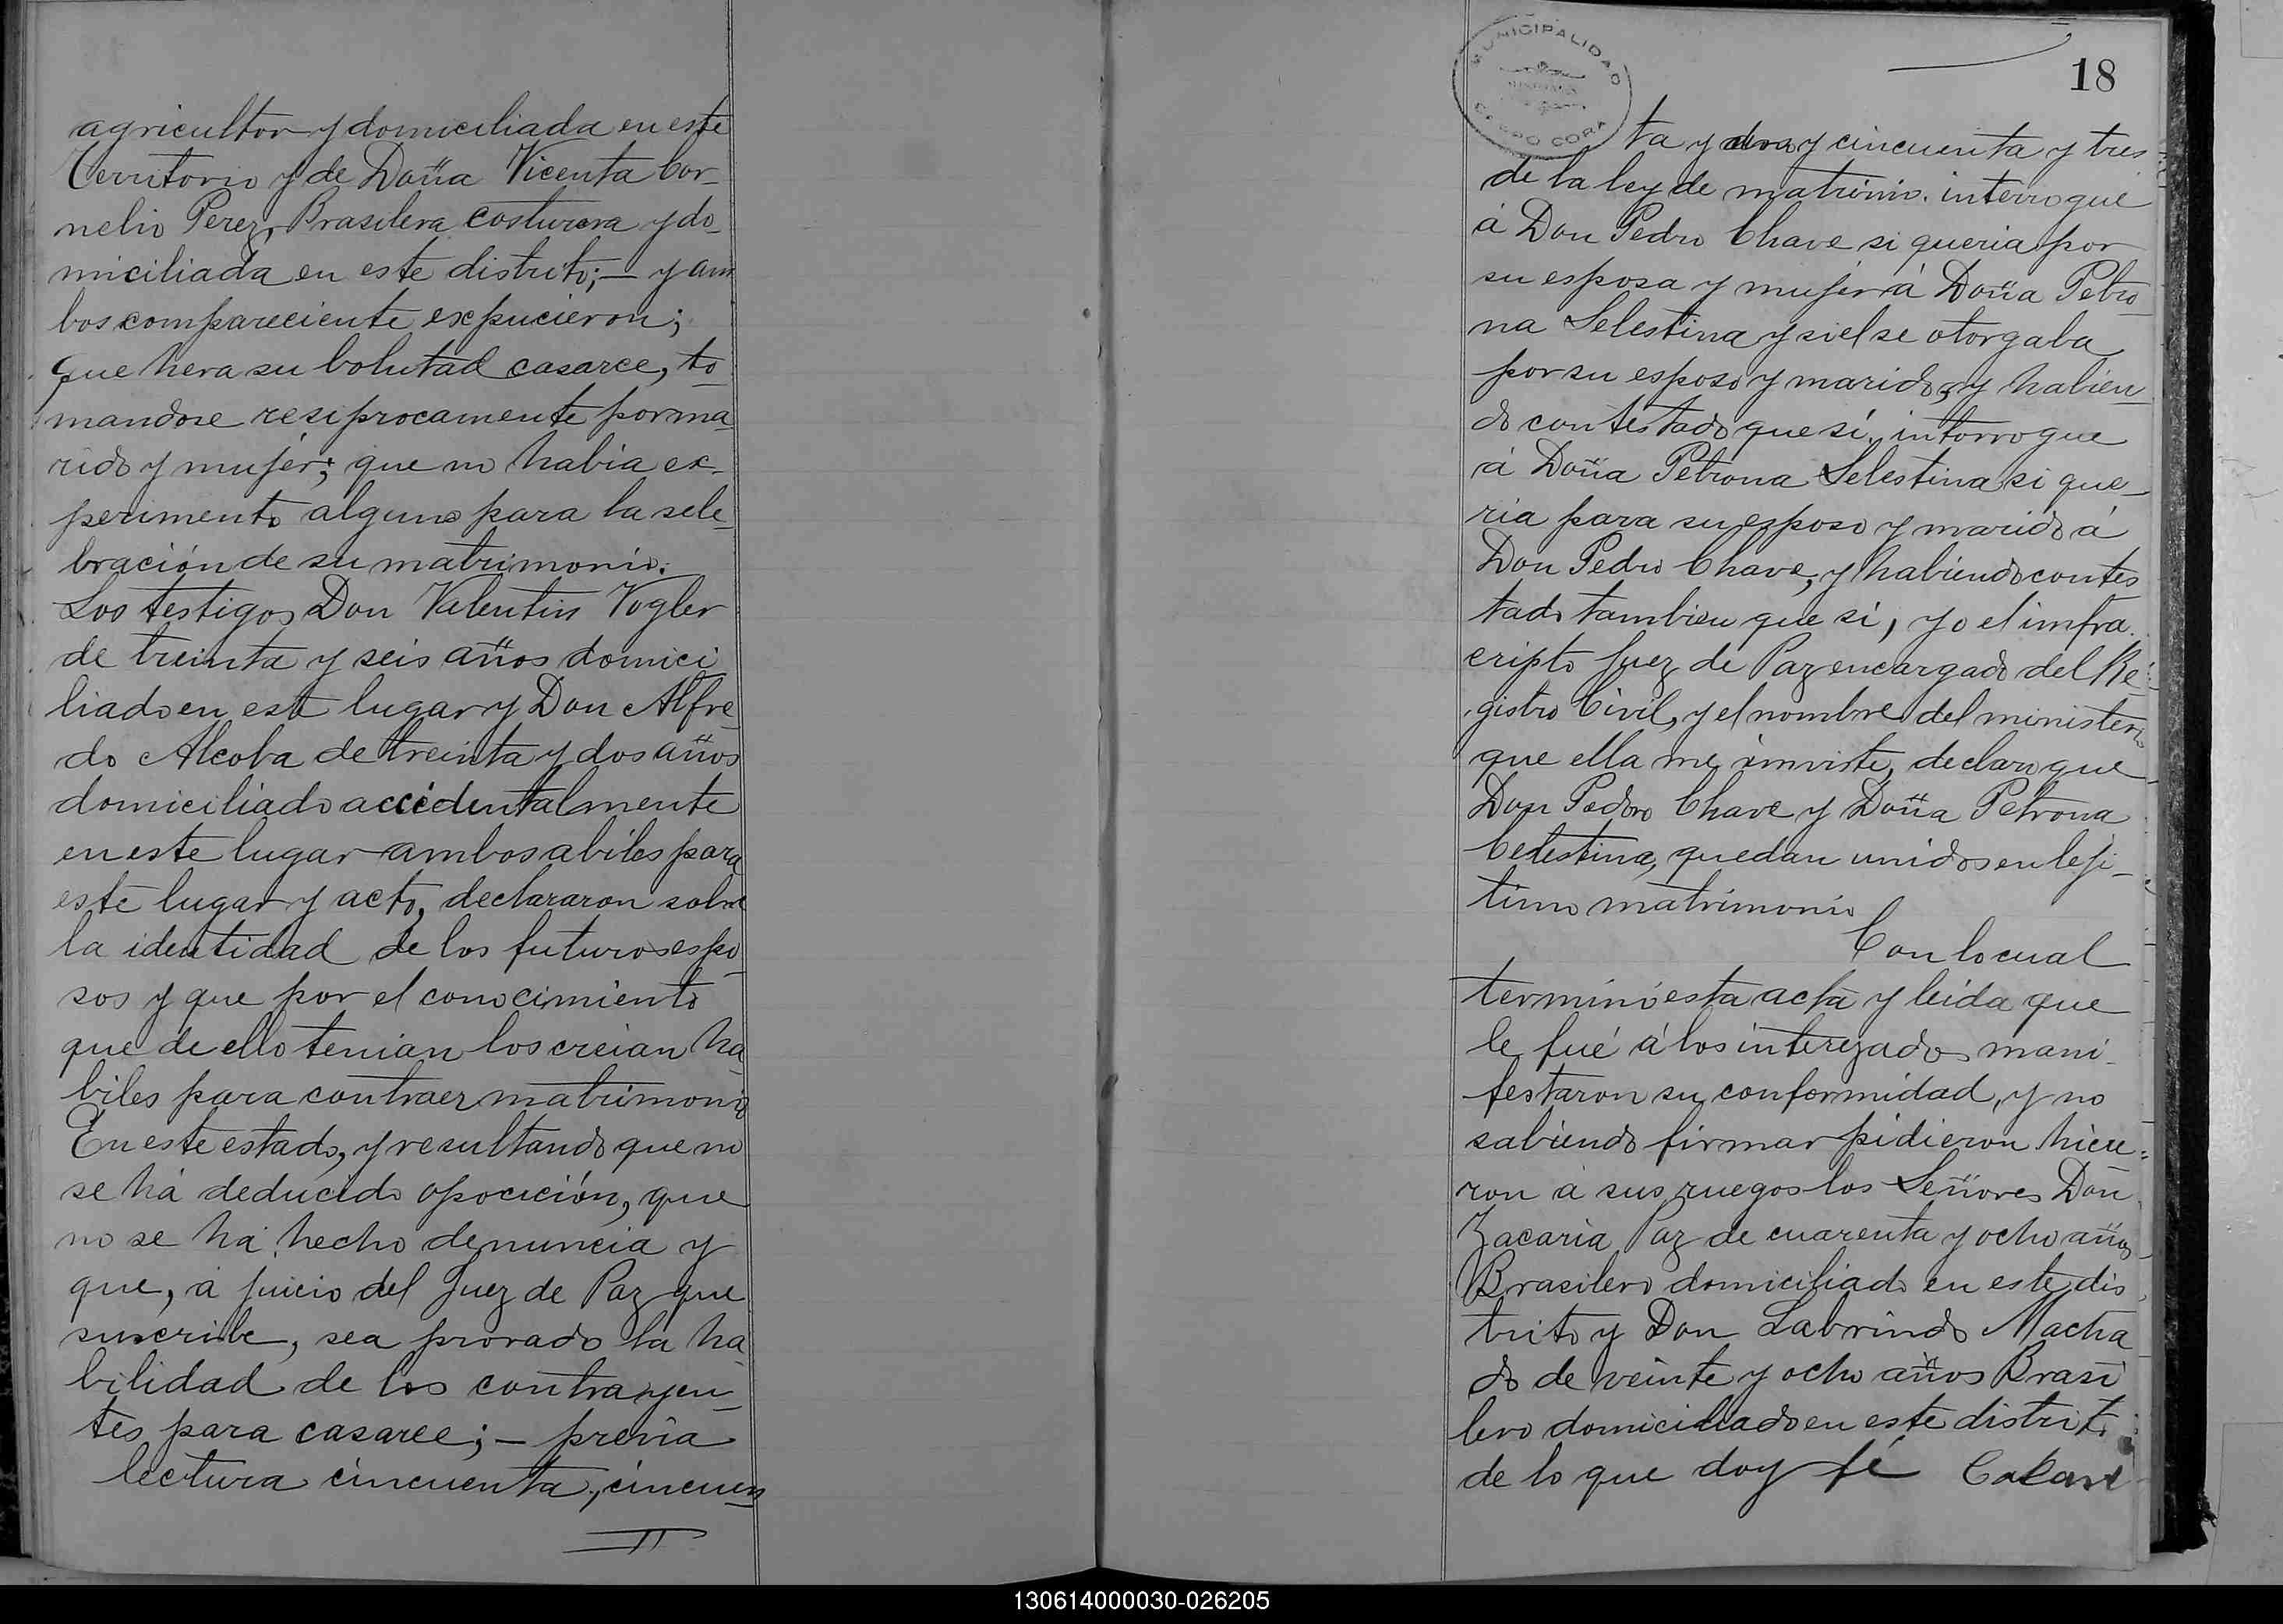 agricultor y domiciliada en este
Territorio y de Doña Vicenta Cor-
nelio Perez, Brasilera costurera y do-
miciliada en este distrito; — y am
bos compareciente expucieron;
que hera su bolutad casarce, to-
mandose resiprocamente por ma-
rido y mujer; que no habia ex-
perimento alguno para la sele-
bración de su matrimonio.
Los testigos Don Valentin Vogler
de treinta y seis años domici
liado en este lugar y Don Alfre-
do Alcoba de treinta y dos años
domiciliado accidentalmente
en este lugar ambos abiles para
este lugar y acto, declararon sobre
la identidad de los futuros espo-
sos y que por el conocimiento
que de ello tenian los creian ha
biles para contraer matrimonio
En este estado, y resultando que no
se há deducido opocición, que
no se há hecho denuncia y
que, á juicio del Juez de Paz que
suscribe, sea provado la ha
bilidad de los contrayen-
tes para casarce; — previa
lectura cincuenta, cincuen
18
MUNICIPALIDAD
CORA
ta y dos y cincuenta y tres
de la ley de matrinio. interrogué
á Don Pedro Chave si queria por
su esposa y mujer á Doña Petro
na Selestina y si el se otorgaba
por su esposo y marido, y habien-
do contestado que sí. intorrogue
á Doña Petrona Selestina si que-
ria para su esposo y marido á
Don Pedro Chave, y habiendo contes
tado tambien que si, yo el imfra
cripto Juez de Paz encargado del Re-
gistro Civil, y el nombre del ministerio
que ella me inviste, declaro que
Don Pedro Chave y Doña Petrona
Celestina, quedan unidos en leji-
timo matrimonio
Con lo cual
terminó esta acta y leida que
le fué á los interezados mani-
festaron su conformidad, y no
sabiendo firmar pidieron hicie-
ron á sus ruegos los Señores Don
Zacaria Paz de cuarenta y ocho años
Brasilero domiciliado en este dis
trito y Don Labrindo Macha
do de veinte y ocho años Brasi
lero domiciliado en este distrito
de lo que doy fé
130614000030-026205